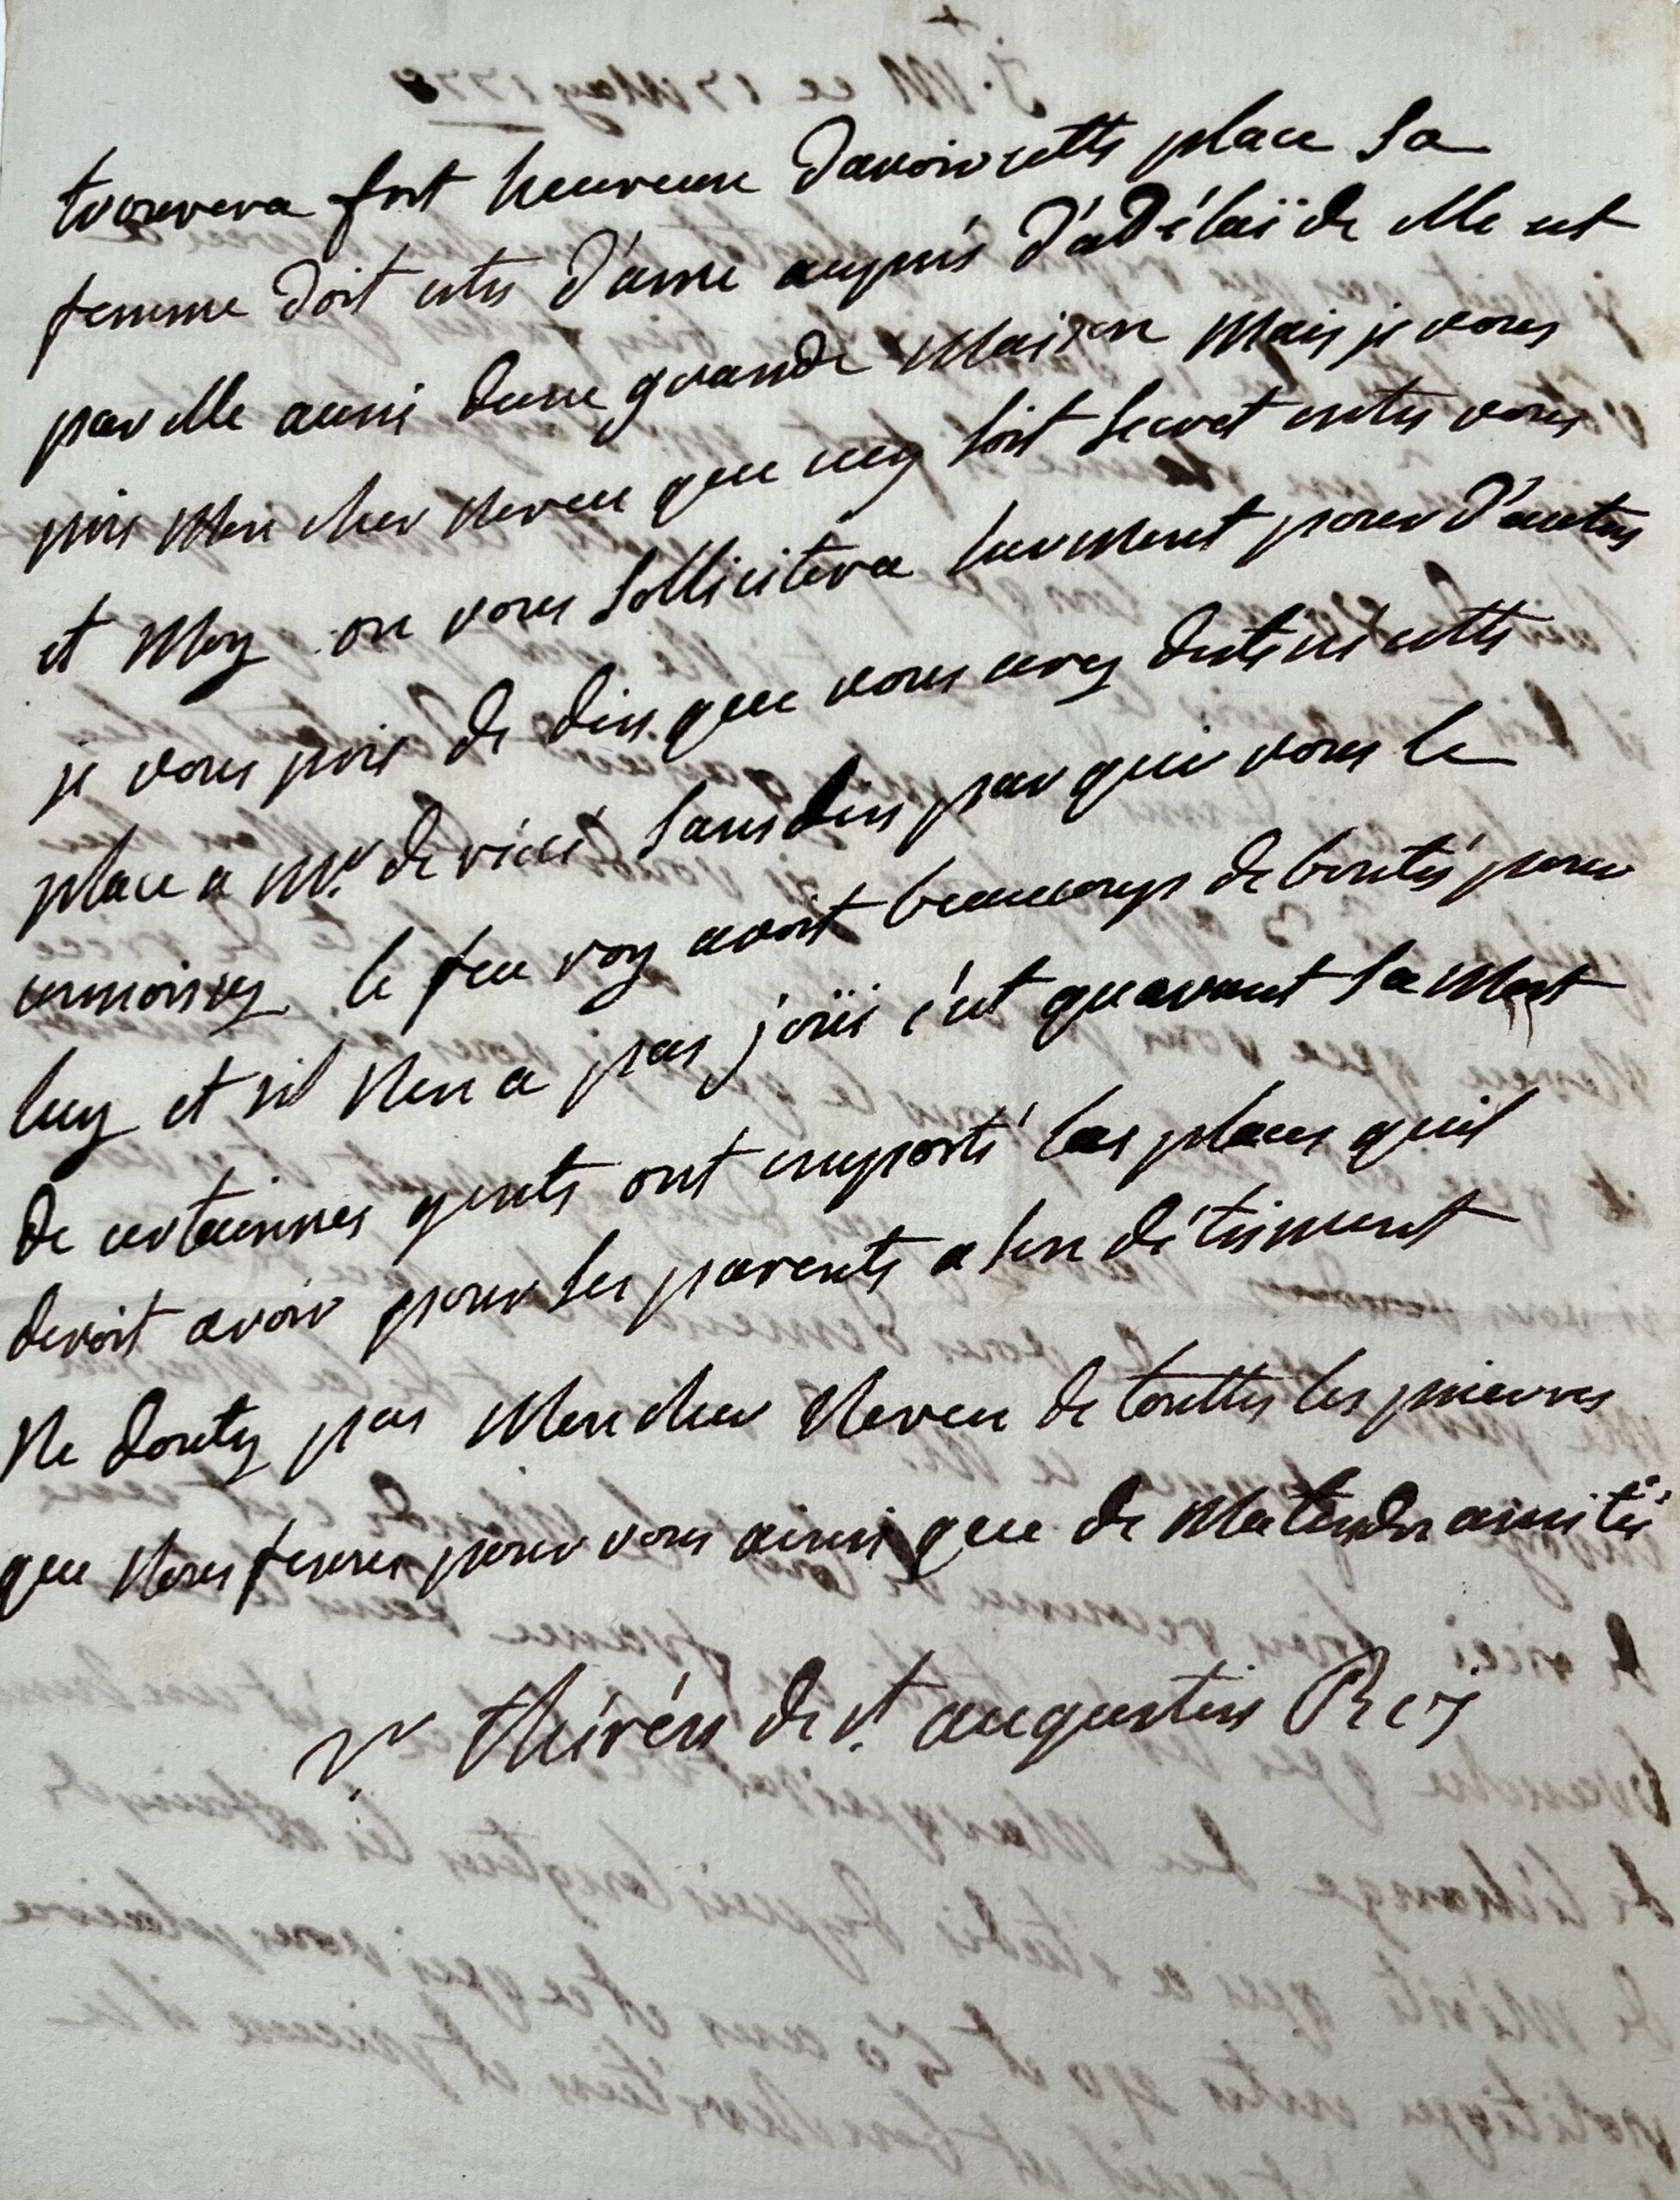 trouvera fort heureuse davoir cette place sa
femme doit estre d'ame auprés d'adélaïde elle est
par elle aussi dune grande Maison Mais je vous
prie Mon cher Neveu que cecy soit secret entre vous
et Moy on vous sollicitera surement pour d'autres
je vous prie de dire que vous avez destiné cette
place a Mr. de ricé sans dire par qui vous le
connoissez le feu roy avoit beaucoups de bontés pour
luy et sil Nen a pas joüi c'est quavant sa Mort
de certainnes gents ont emporté les places quil
devoit avoir pour les parents a son détriment
Ne doutez pas Mon cher Neveu de touttes les prieres
que Nous fesons pour vous ainsi que de Ma tendre amitié
Sr. thérése de st. augustin R c i